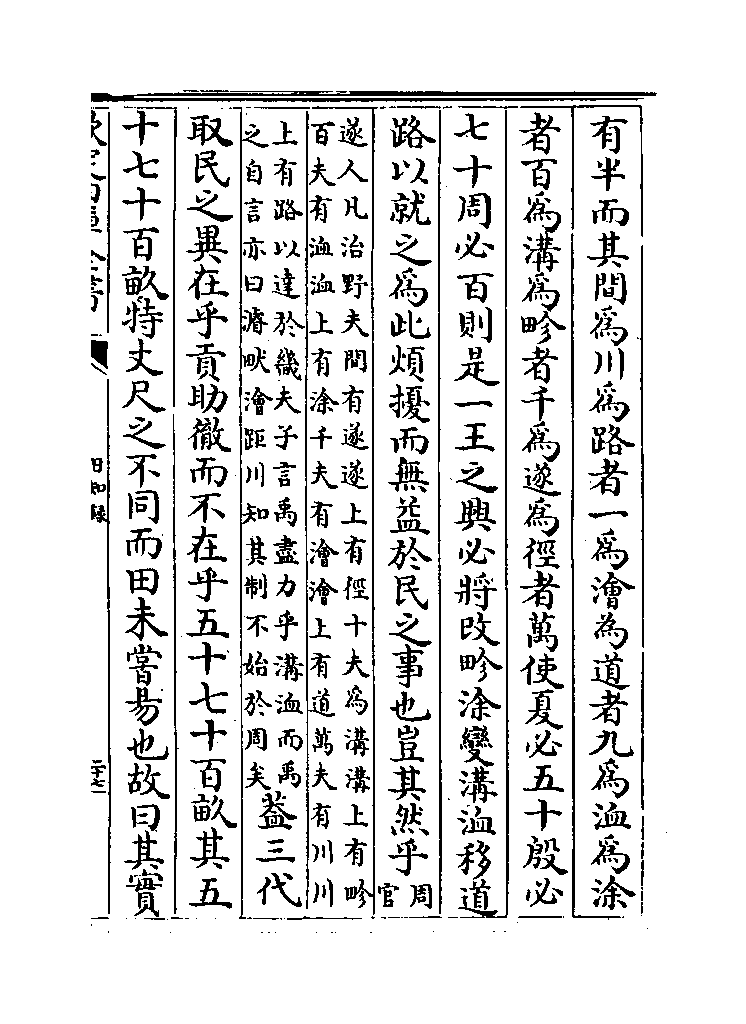 有半而其間爲川爲路者一爲澮為道者九爲洫爲涂
者百爲溝爲畛者千爲遂爲徑者萬使夏必五十殷必
七十周必百則是一王之興必將改畛涂變溝洫移道
路以就之爲此煩擾而無益於民之事也豈其然乎周
官
遂人凡治野夫間有遂遂上有徑十夫爲溝溝上有畛
百夫有洫洫上有涂千夫有澮澮上有道萬夫有川川
上有路以達於畿夫子言禹盡力乎溝洫而禹
之自言亦曰濬畎澮距川知其制不始於周矣
蓋三代
取民之異在乎貢助徹而不在乎五十七十百畝其五
十七十百畝特丈尺之不同而田未嘗易也故曰其實
日知錄
二十七